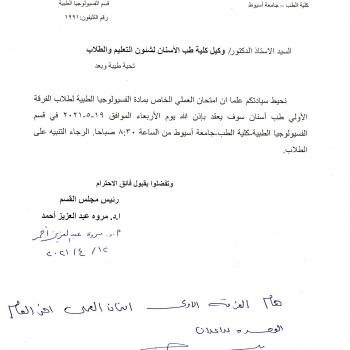 كلية الطب – جامعة أسيوط
قسم الفسيولوجيا الطبية
رقم التليفون: ١٩٩١
السيد الاستاذ الدكتور/ وكيل كلية طب الأسنان لشئون التعليم والطلاب
تحية طيبة وبعد
نحيط سيادتكم علما ان امتحان العملي الخاص بمادة الفسيولوجيا الطبية لطلاب الفرقة
الأولي طب أسنان سوف يعقد بإذن الله يوم الأربعاء الموافق ١٩-٥-٢٠٢١ في قسم
الفسيولوجيا الطبية-كلية الطب-جامعة أسيوط من الساعة ٨:٣٠ صباحا. الرجاء التنبيه على
الطلاب.
وتفضلوا بقبول فائق الاحترام
رئيس مجلس القسم
ا.د. مروه عبد العزيز أحمد
ا.د. مروه عبد العزيز أحمد
٢٠٢١/٤/١٢
هام الفرقة الأولى امتحان العملى اخر العام